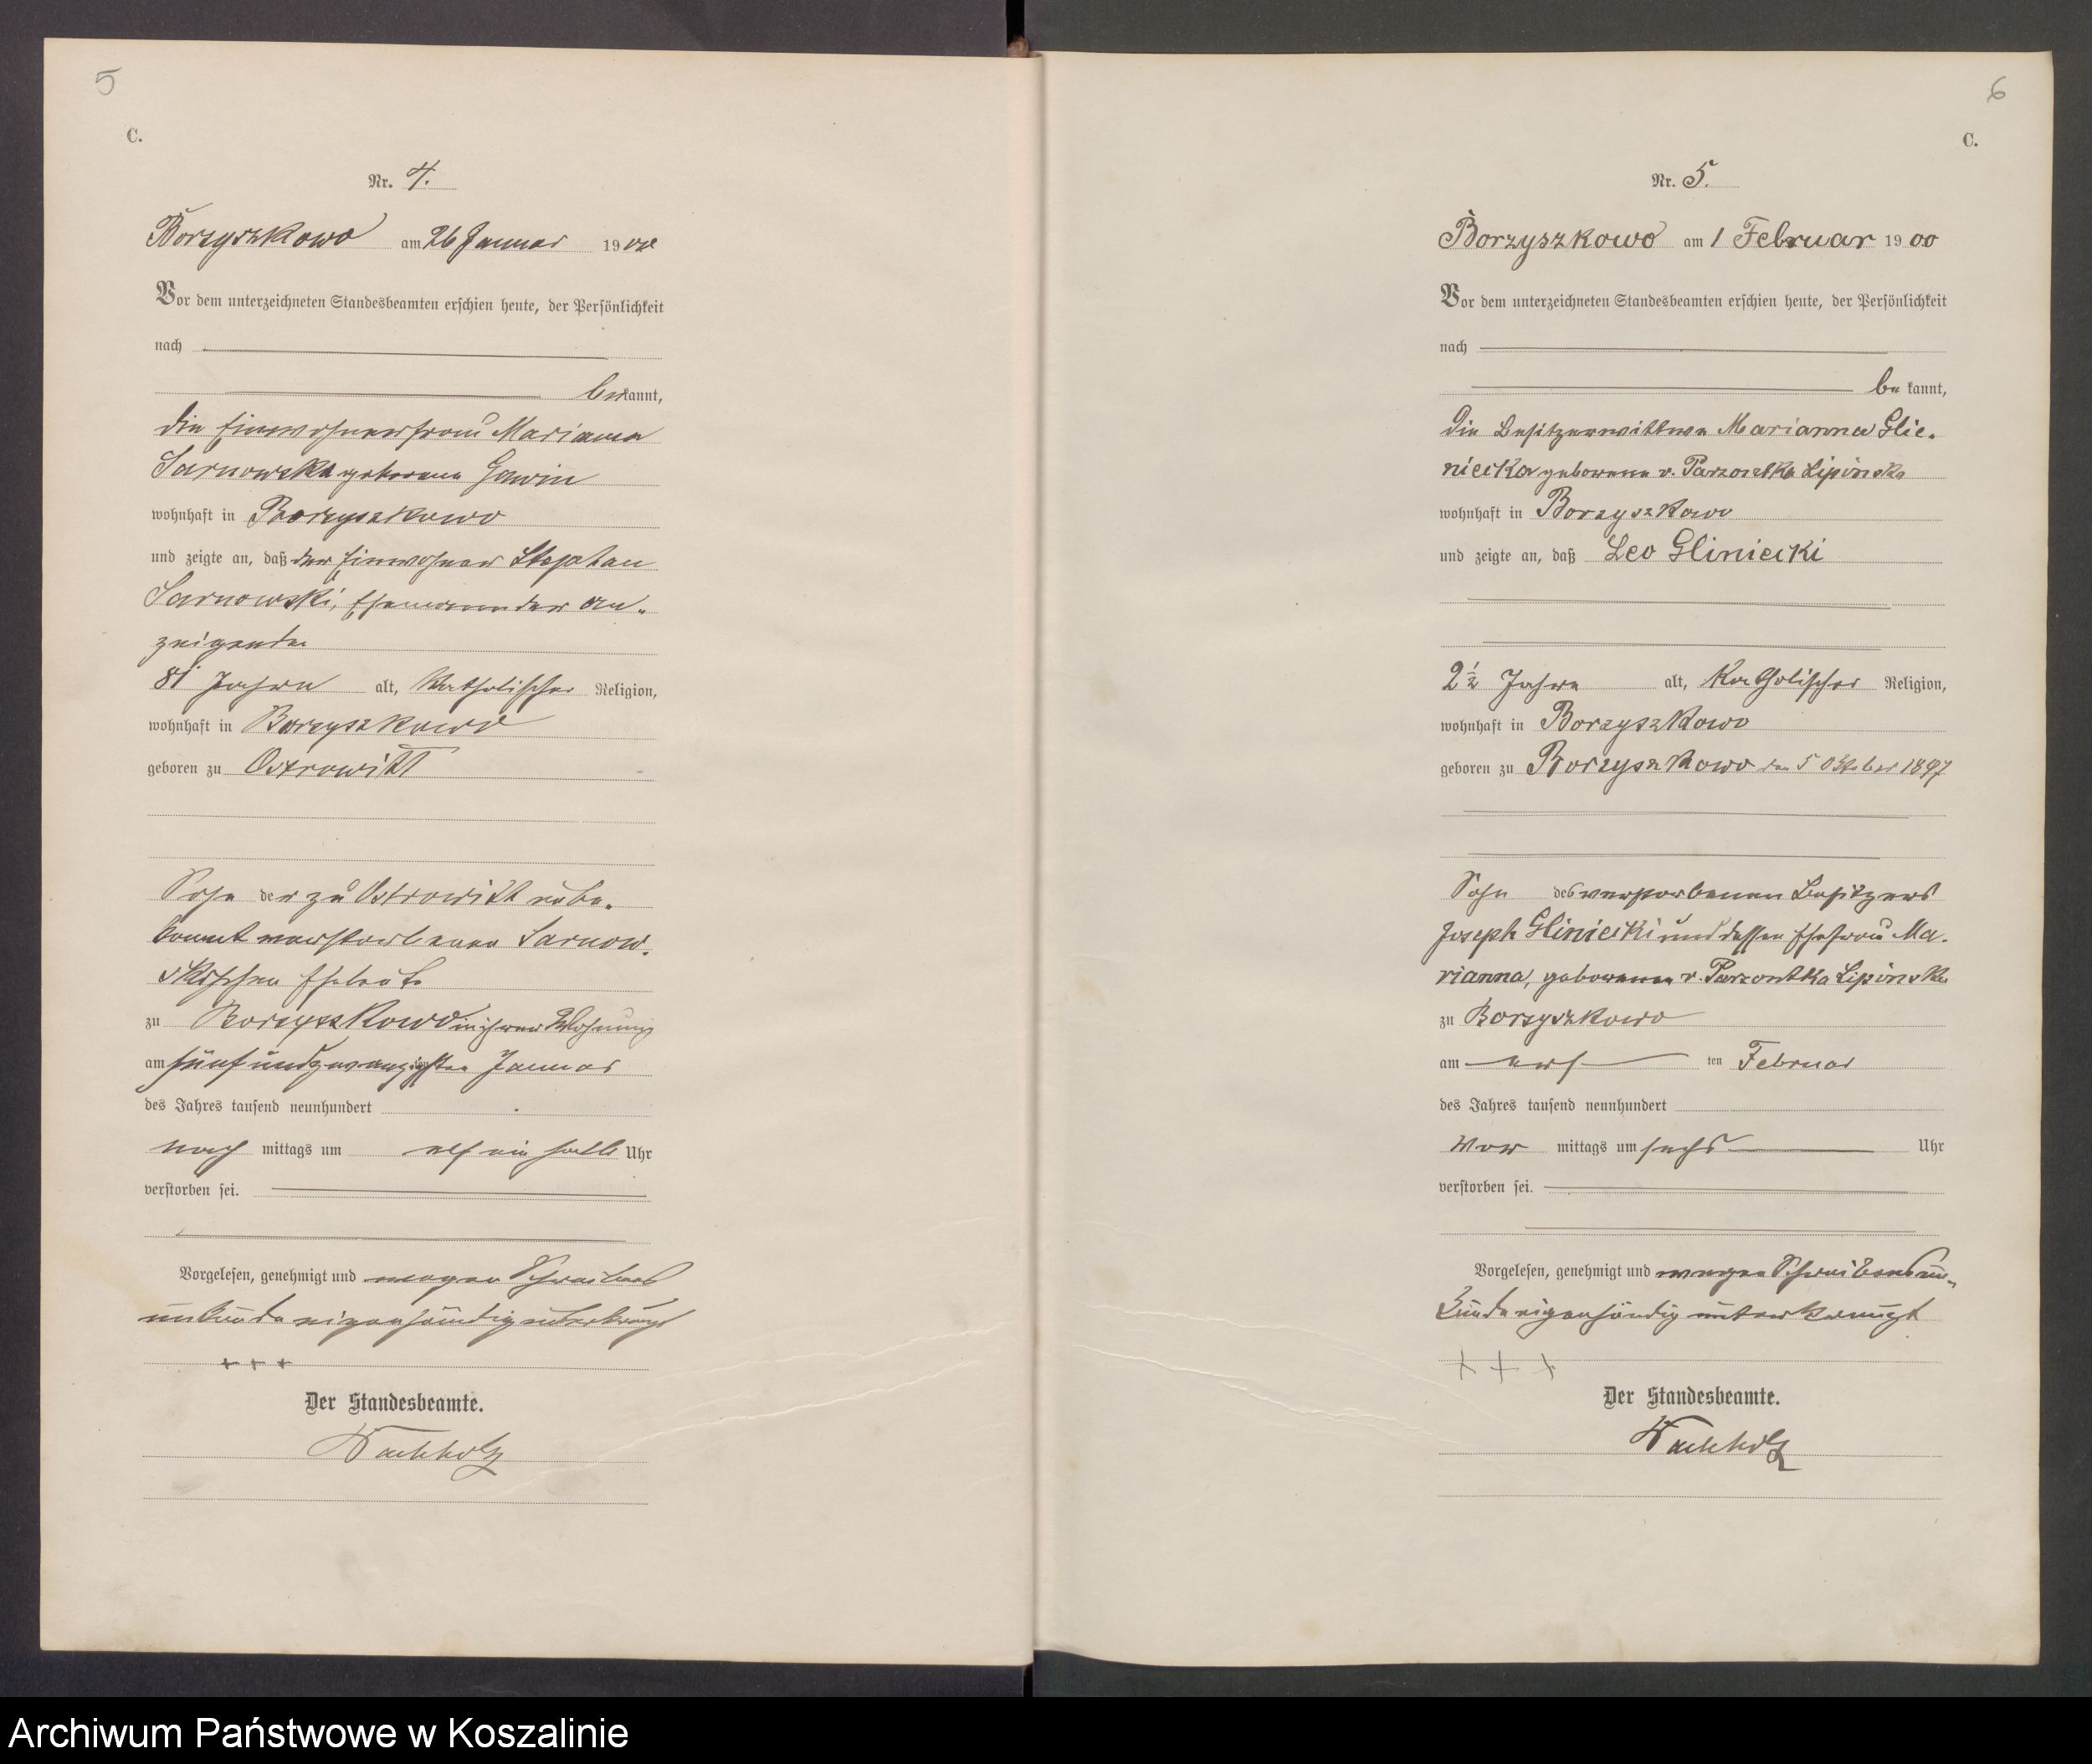 5
C.
Nr. 4.
Borzyszkowo am 26 Januar 1900
Vor dem unterzeichneten Standesbeamten erschien heute, der Persönlichkeit
nach
bekannt,
die Einwohnerfrau Marianna
Sarnowska geborene Gawin
wohnhaft in Borzyszkowo
und zeigte an, daß der Einwohner Stephan
Sarnowski, Ehemann der An-
zeigende
81 Jahre alt, katholischer Religion,
wohnhaft in Borzyszkowo
geboren zu Ostrowitt
Sohn der zu Ostrowitt
verstorbenen Sarnow-
skischen Eheleute
zu Borzyszkowo in ihrer Wohnung
am fünfundzwanzigsten Januar
des Jahres tausend neunhundert
nach mittags um elf ein halb Uhr
verstorben sei.
Vorgelesen, genehmigt und wegen Schreibens
unkunde eigenhändig unterkreuzt
+ + +
Der Standesbeamte.
Wachholz
6
C.
Nr. 5.
Borzyszkowo am 1 Februar 1900
Vor dem unterzeichneten Standesbeamten erschien heute, der Persönlichkeit
nach
bekannt,
die Besitzerwittwe Marianna Glie-
niecka geborene v. Parzontka Lipinska
wohnhaft in Borzyszkowo
und zeigte an, daß Leo Gliniecki
2½ Jahre alt, katholischer Religion,
wohnhaft in Borzyszkowo
geboren zu Borzyszkowo den 5 Oktober 1897
Sohn des verstorbenen Besitzers
Joseph Gliniecki und dessen Ehefrau Ma-
rianna, geborenen v. Parzontka Lipinska
zu Borzyszkowo
am ersten Februar
des Jahres tausend neunhundert
Vor mittags um sechs Uhr
verstorben sei.
Vorgelesen, genehmigt und wegen Schreibensun-
kunde eigenhändig unterkreuzt
+ + +
Der Standesbeamte.
Wachholz
Archiwum Państwowe w Koszalinie